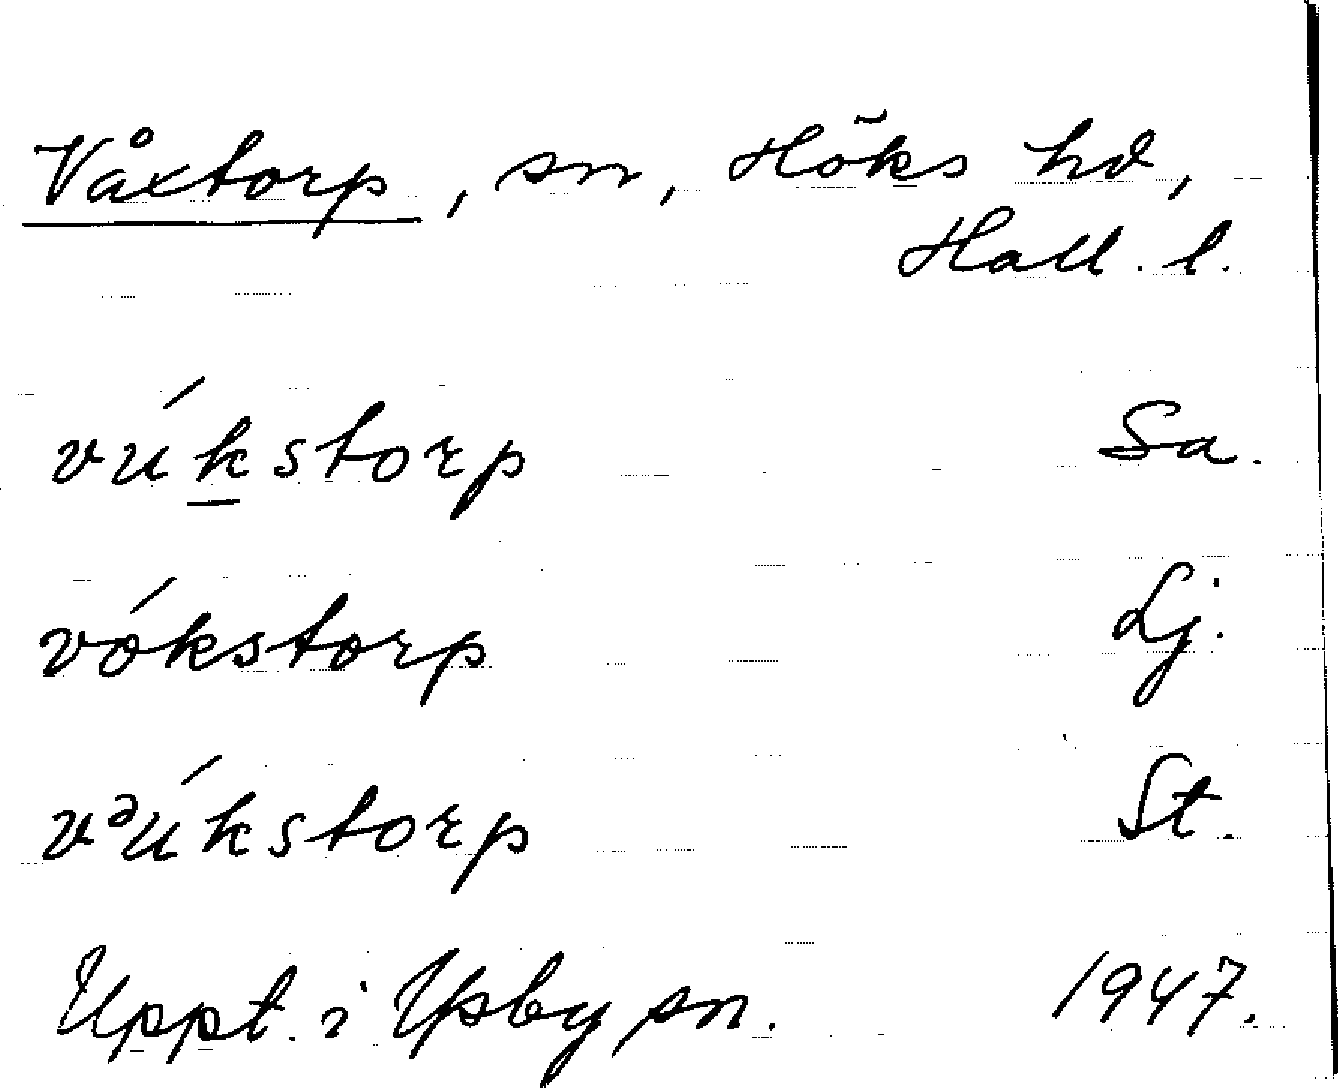 Våxtorp, sn, Höks hd,
Hall. l.
vúkstorp Sa.
vókstorp Lj.
vᵊúkstorp St.
Uppt. i Ysby sn. 1947.